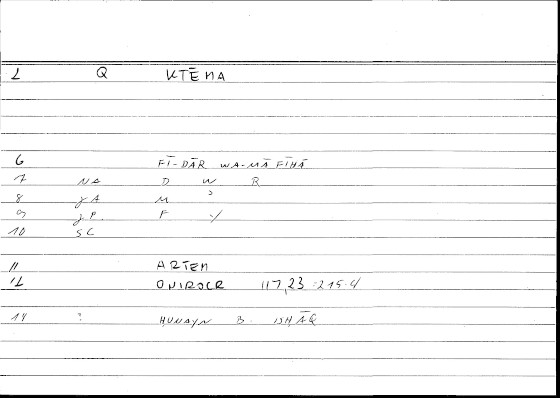 L Q KTĒMA
6 FĪ-DĀR WA-MĀ FĪHĀ
7 NA D W R
8 yA M ʾ
9 yP. F y
10 SC
11 ARTEM
12 ONIROCR 117,23 =215.4
14 ? ḤUNAYN B. ISḤĀQ